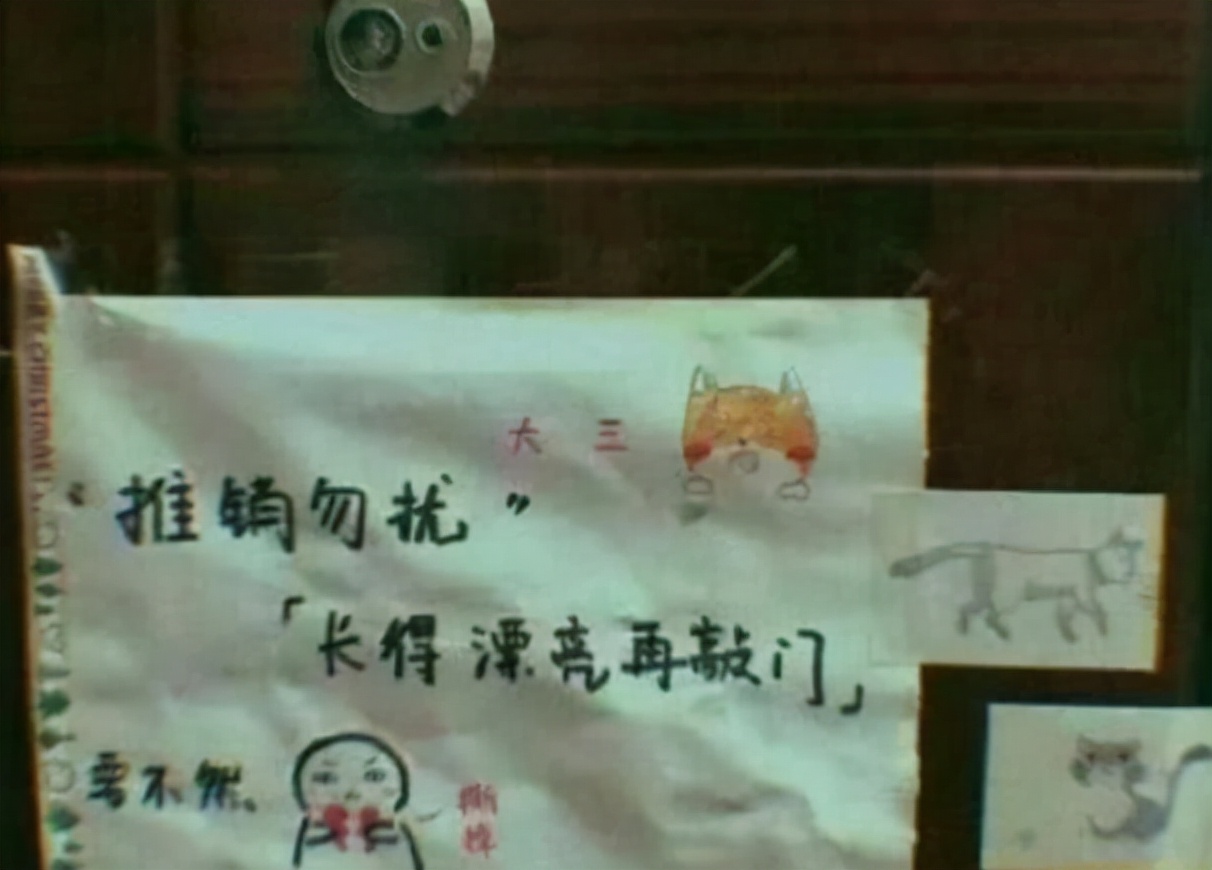 大 三
“推销勿扰”
「长得漂亮再敲门」
要不然、
撕掉